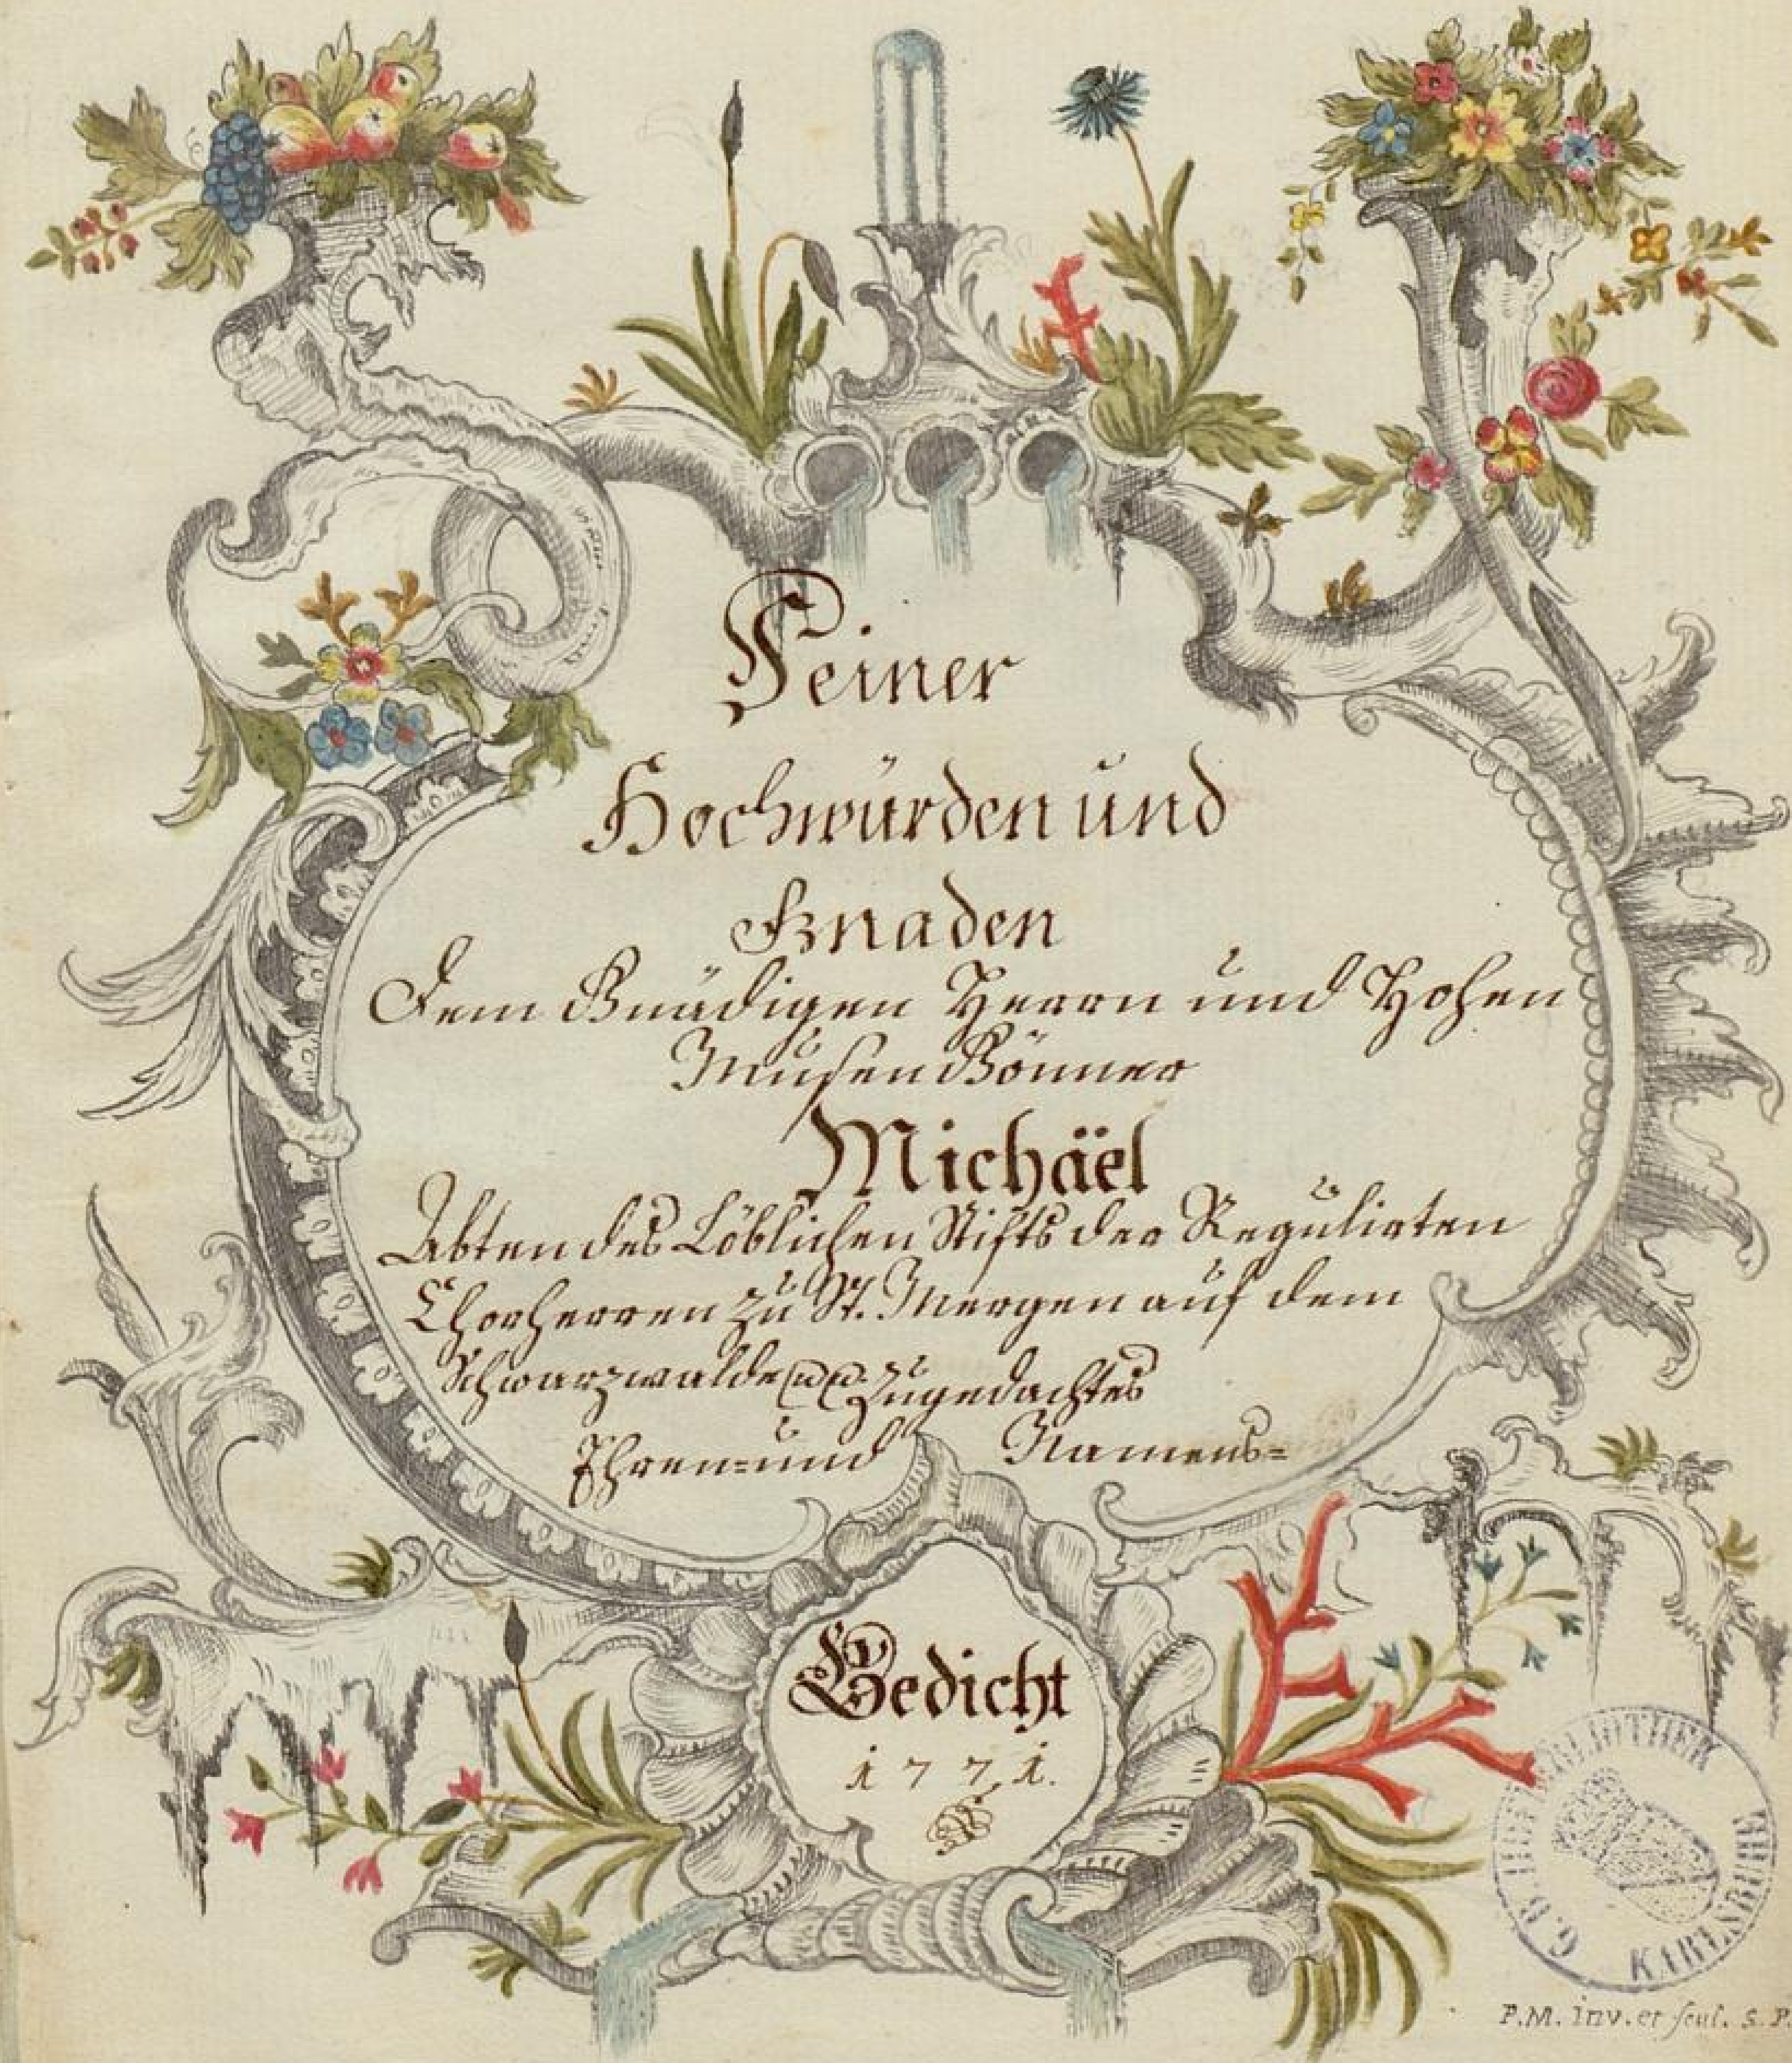 Seiner
Hochwürden und
Gnaden
Dem Gnädigen Herrn und Hohen
Musen Gönner
Michäël
Abten des Löblichen Stifts der Regulirten
Chorherren zu St. Mergen auf dem
Schwarzwalde Zugedachtes
Ehren= und Namens=
Gedicht
1771.
G. B. HOF BIBLIOTHEK KARLSRUHE
P.M. inv. et scul. S.P.